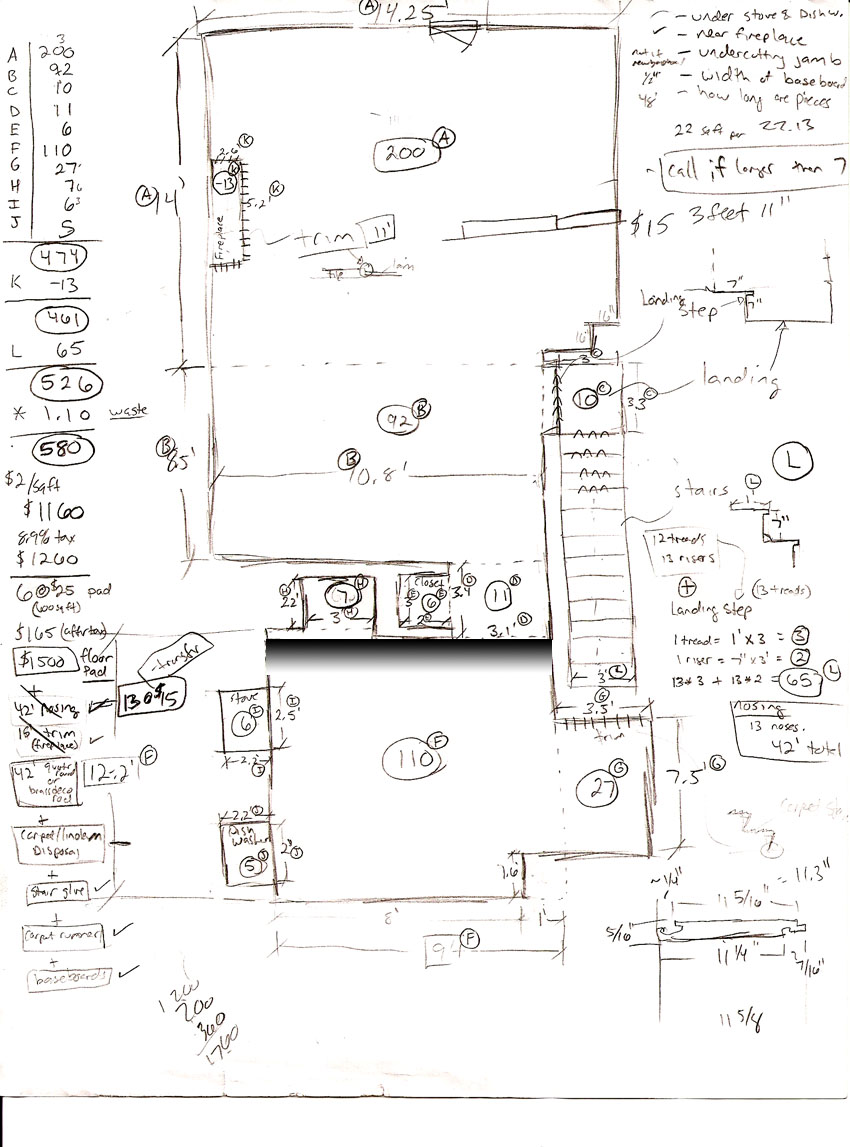 A 200
B 92
C 10
D 11
E 6
F 110
G 27
H 7
I 6
J 5
474
K -13
461
L 65
526
* 1.10 waste
580
$2/sqft
$1160
8.9% tax
$1260
6 @ $25 pad
(100 sqft)
$165 (after tax)
$1500 floor pad
+
42' nosing
13 @ $15
transfer
18' trim
(fireplace)
42'
12.2' F
+
carpet/linoleum
Disposal
+
stair glue
+
carpet runner
+
baseboards
1200
200
360
1760
A 14.25'
A 14'
200 A
2.6' K
-13 K
5.2' K
Fireplace
trim 11'
16"
16"
3' C
10 C
3.3' C
92 B
B 10.8'
B 8.5'
stairs
H 2.2'
7 H
3' H
closet
3' E
6 E
2' D
3.4' D
11 D
3.1' D
stove
6 I
2.5' I
2.2' I
110 F
2.2' J
Dish
washer
5 J
2' J
3' L
3.5' G
trim
27 G
7.5' G
1.6'
8'
1'
94 F
- under stove & Dishw.
- near fireplace
- undercutting jamb
1/2" - width of baseboard
48' - how long are pieces
22 sqft per 22.13
~ call if longer than 7
$15 3 feet 11"
Landing
Step
7"
7"
landing
L
L
1'
7"
12 treads
13 risers
+ (13 treads)
Landing step
1 tread = 1' x 3 = 3
1 riser = 7" x 3' = 2
13*3 + 13*2 = 65 L
nosing
13 noses.
42' total
~1/4"
11 5/16"
~ 11.3"
5/16"
11 1/4"
7/16"
11 5/8